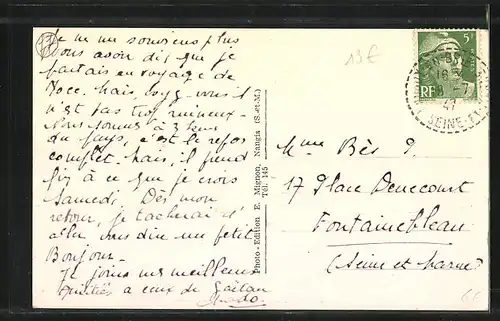 Je ne me souviens plus
vous avoir dit que je
partais en voyage de
Noce. Mais, soyez-vous il
n'est pas très ruineux.
Nous sommes à 3 km
du pays, c'est le repos
complet. Mais, il prend
fin à ce que je crois
Samedi. Dès mon
retour, je tacherai d'
aller vous dire un petit
Bonjour.
Je joins mes meilleures
amitiés à ceux de Gaëtan
Photo-Edition E. Mignon, Nangis (S.-et-M.)
Tél. 145
13€
5F
RF
16
8 - 7
47
SEINE-ET
Mme Bès P.
17 Place Denecourt
Fontainebleau
(Seine et Marne)